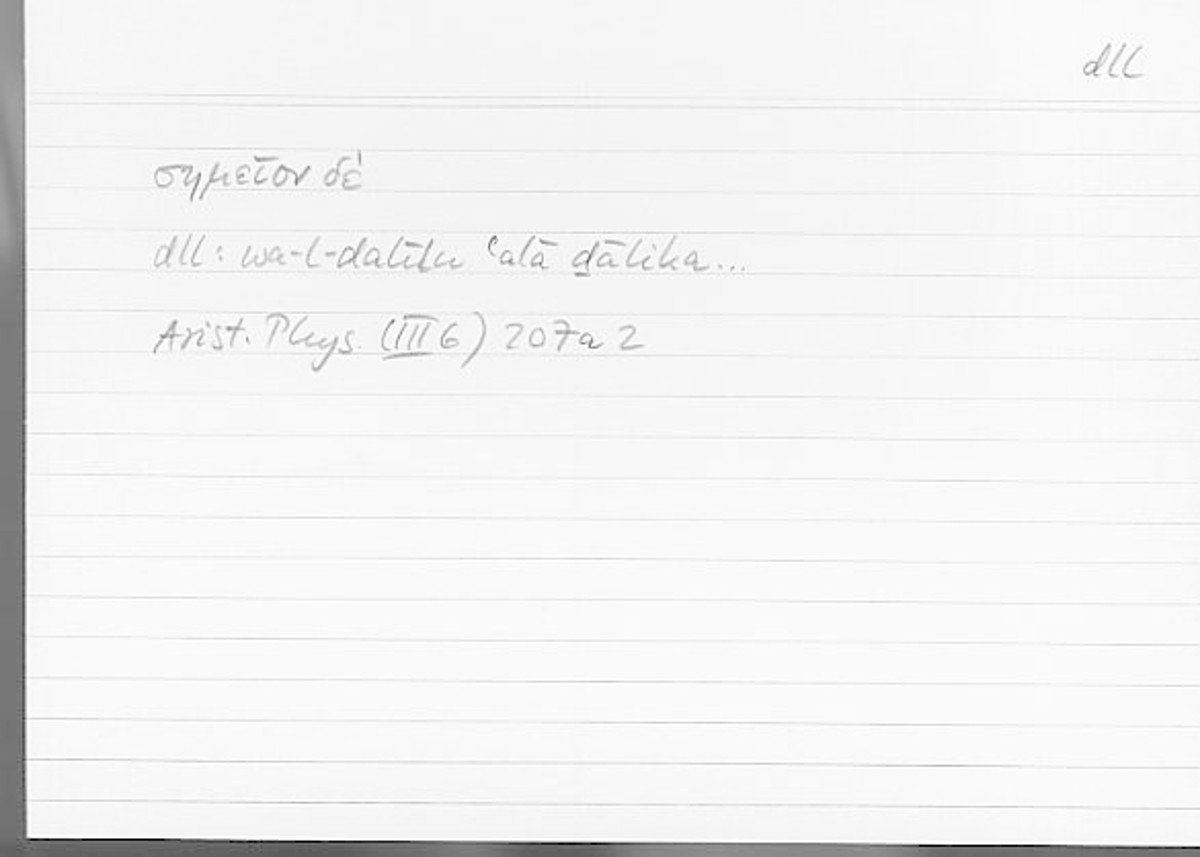 dll
σημεῖον δέ
dll: wa-l-dalīlu ʿalā ḏālika...
Arist. Phys. (III 6) 207a 2